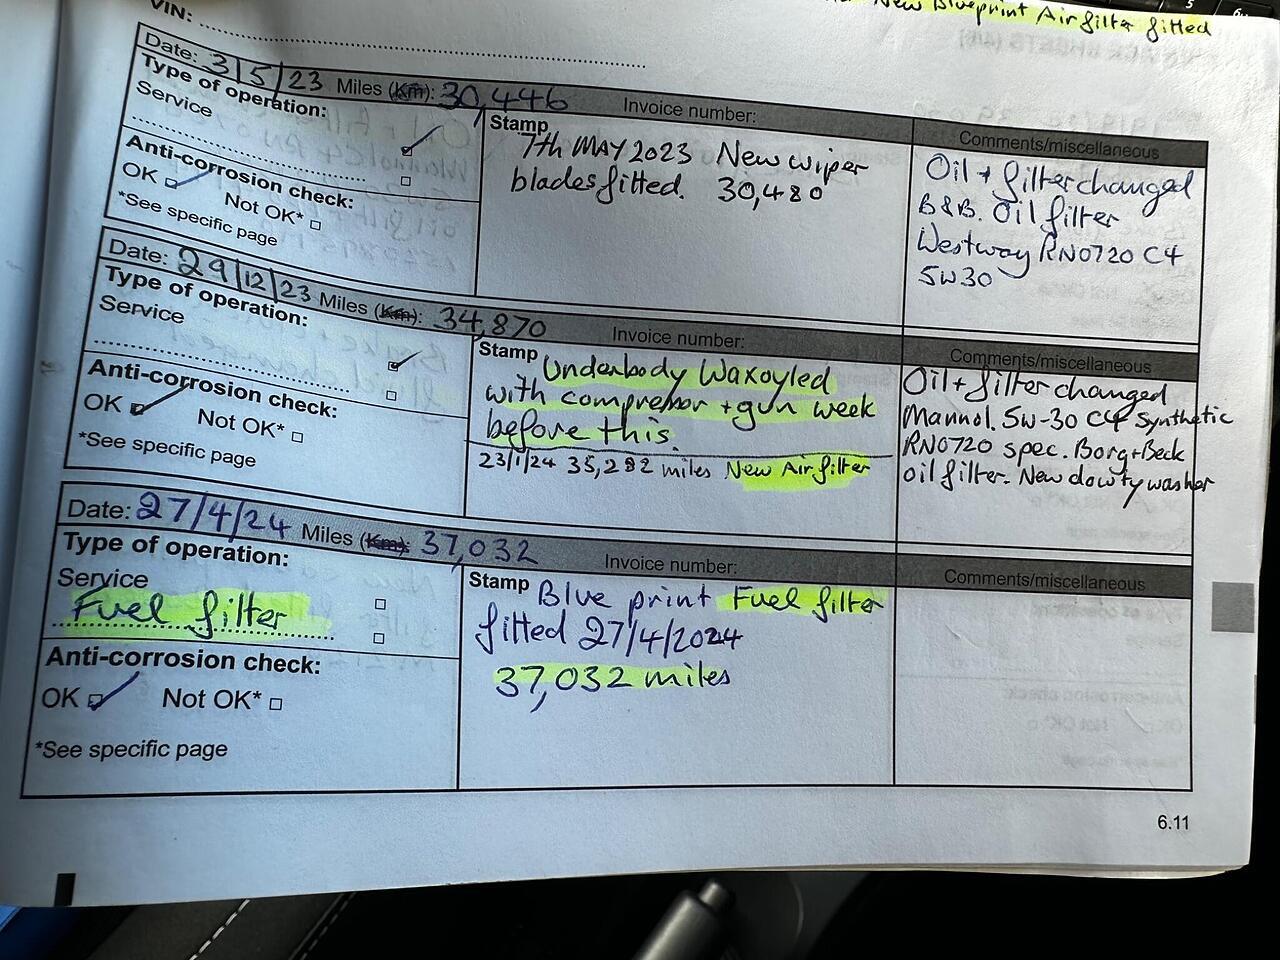 New Blueprint Air filter fitted
VIN:
Date: 3/5/23 Miles (Km): 30,446 Invoice number:
Type of operation:
Service
Anti-corrosion check:
OK Not OK*
*See specific page
Stamp
7th MAY 2023 New wiper
blades fitted. 30,480
Comments/miscellaneous
Oil + filter changed
B&B. Oil filter
Westway RN0720 C4
5W30
Date: 29/12/23 Miles (Km): 34,870 Invoice number:
Type of operation:
Service
Anti-corrosion check:
OK Not OK*
*See specific page
Stamp Underbody Waxoyled
with compressor + gun week
before this.
23/1/24 35,292 miles New Air filter
Comments/miscellaneous
Oil + filter changed
Mannol. 5w-30 C4 Synthetic
RN0720 spec. Borg + Beck
oil filter. New dowty washer
Date: 27/4/24 Miles (Km): 37,032 Invoice number:
Type of operation:
Service
Fuel filter
Anti-corrosion check:
OK Not OK*
*See specific page
Stamp Blue print Fuel filter
fitted 27/4/2024
37,032 miles
Comments/miscellaneous
6.11